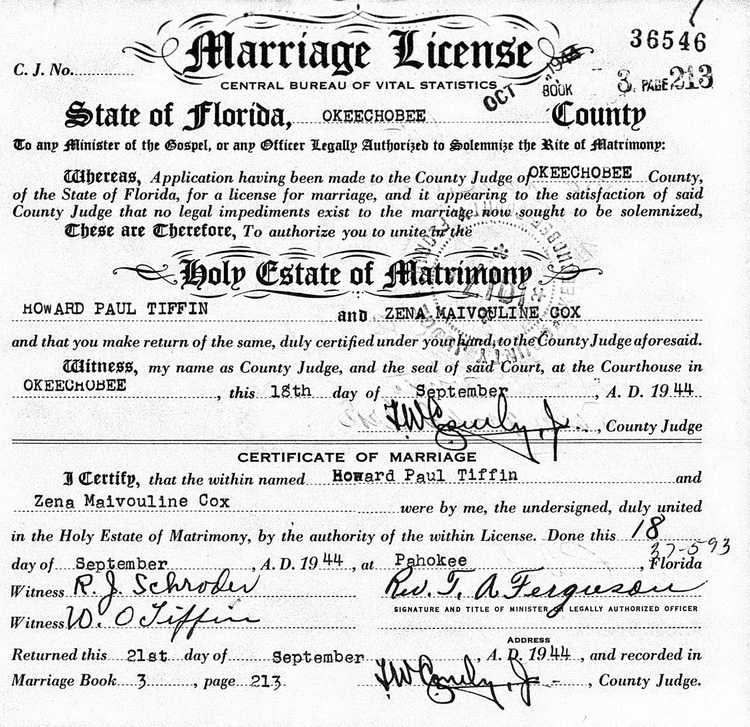 Marriage License
36546
C. J. No.
CENTRAL BUREAU OF VITAL STATISTICS
OCT 1944
BOOK 3 PAGE 213
State of Florida, OKEECHOBEE County
To any Minister of the Gospel, or any Officer Legally Authorized to Solemnize the Rite of Matrimony:
Whereas, Application having been made to the County Judge of OKEECHOBEE County,
of the State of Florida, for a license for marriage, and it appearing to the satisfaction of said
County Judge that no legal impediments exist to the marriage now sought to be solemnized,
These are Therefore, To authorize you to unite in the
Holy Estate of Matrimony
HOWARD PAUL TIFFIN and ZENA MAIVOULINE COX
and that you make return of the same, duly certified under your hand, to the County Judge aforesaid.
Witness, my name as County Judge, and the seal of said Court, at the Courthouse in
OKEECHOBEE, this 18th day of September, A. D. 1944
, County Judge
CERTIFICATE OF MARRIAGE
I Certify, that the within named Howard Paul Tiffin and
Zena Maivouline Cox were by me, the undersigned, duly united
in the Holy Estate of Matrimony, by the authority of the within License. Done this 18
37-593
day of September, A. D. 1944, at Pahokee, Florida
Witness R. J. Schroder Rev. T. A. Ferguson
SIGNATURE AND TITLE OF MINISTER OR LEGALLY AUTHORIZED OFFICER
Witness W. O Tiffin
ADDRESS
Returned this 21st day of September, A. D. 1944, and recorded in
Marriage Book 3, page 213. , County Judge.